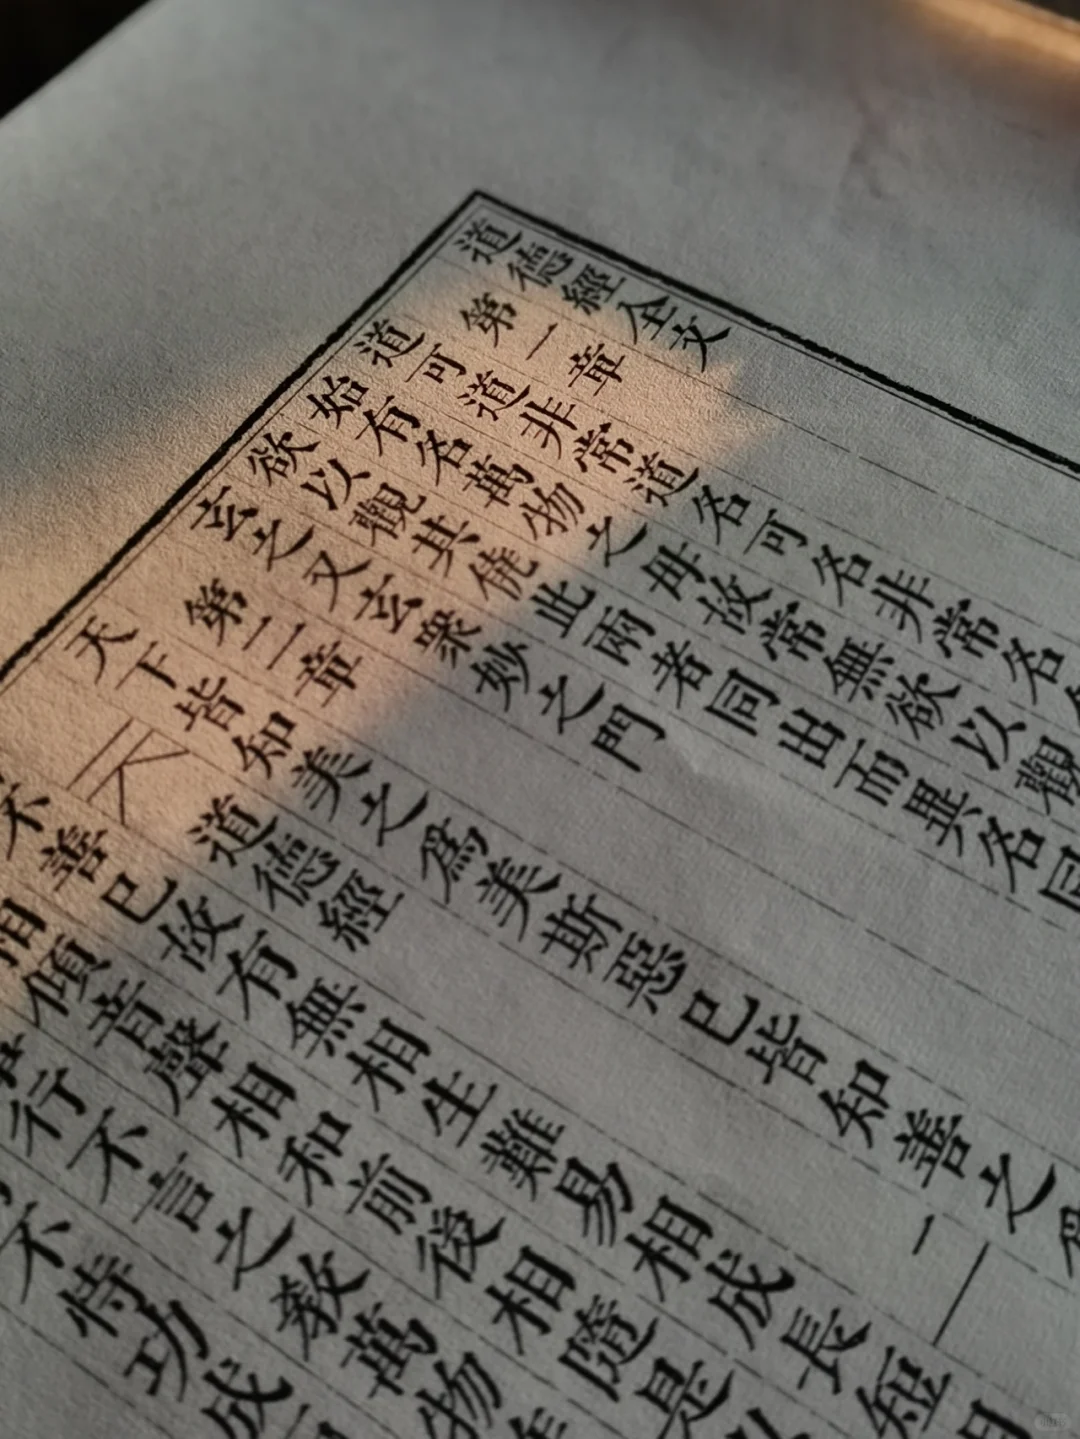 道德經全文
第一章
道可道非常道名可名非常名
始有名萬物之母故常無欲以觀
欲以觀其僥此兩者同出而異名同
玄之又玄衆妙之門
第二章
天下皆知美之爲美斯惡已皆知善之爲
道德經 一
不善已故有無相生難易相成長短相
相傾音聲相和前後相隨是以
行不言之教萬物作
不恃功成